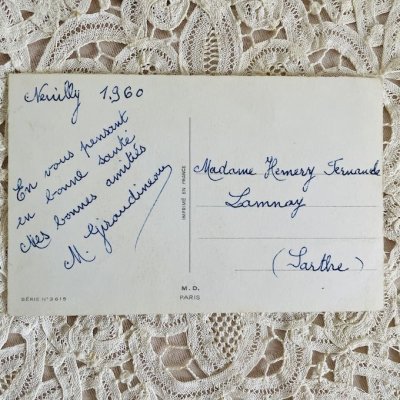 Neuilly 1960
En vous pensant
en bonne santé
Mes bonnes amitiés
M. Giraudineau
IMPRIMÉ EN FRANCE
Madame Hemery Fernande
Lamnay
(Sarthe)
SÉRIE N° 3615
M. D.
PARIS